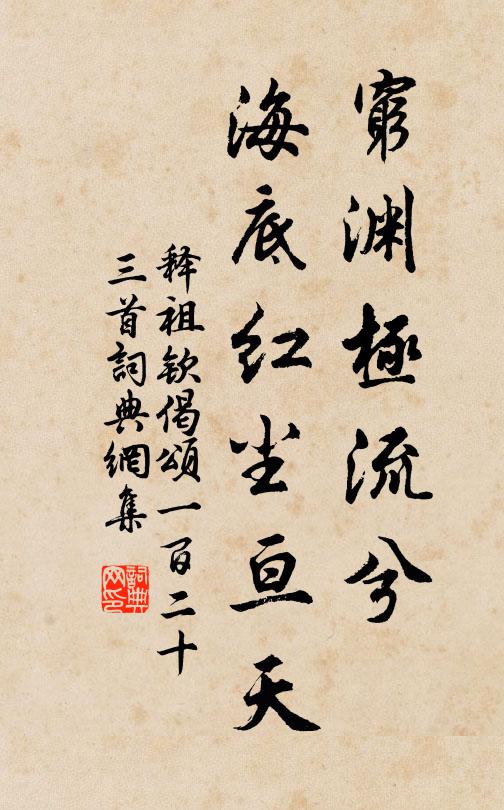 窮渊極流兮
海底红尘亘天
释祖钦偈頌一百二十
三首詞典網集
詞典网印